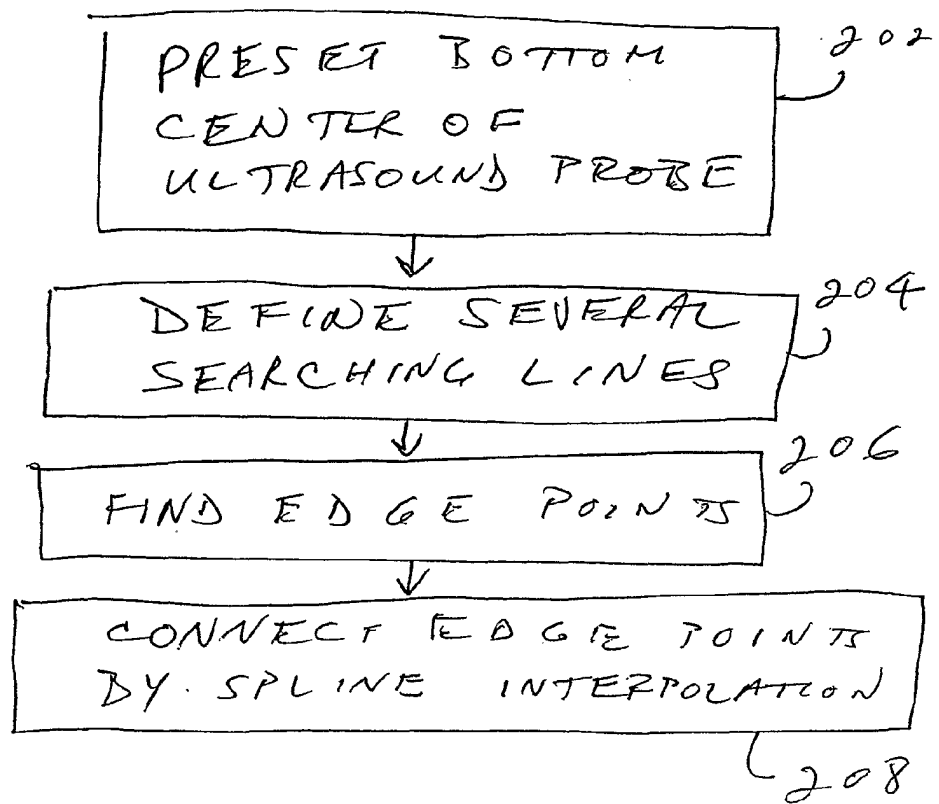 PRESET BOTTOM
202
CENTER OF
ULTRASOUND PROBE
DEFINE SEVERAL
204
SEARCHING LINES
206
FIND EDGE POINTS
CONNECT EDGE POINTS
BY SPLINE INTERPOLATION
208